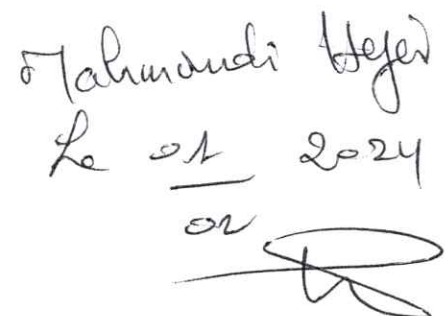 Mahmoudi Hejer
Le 01 2024
02